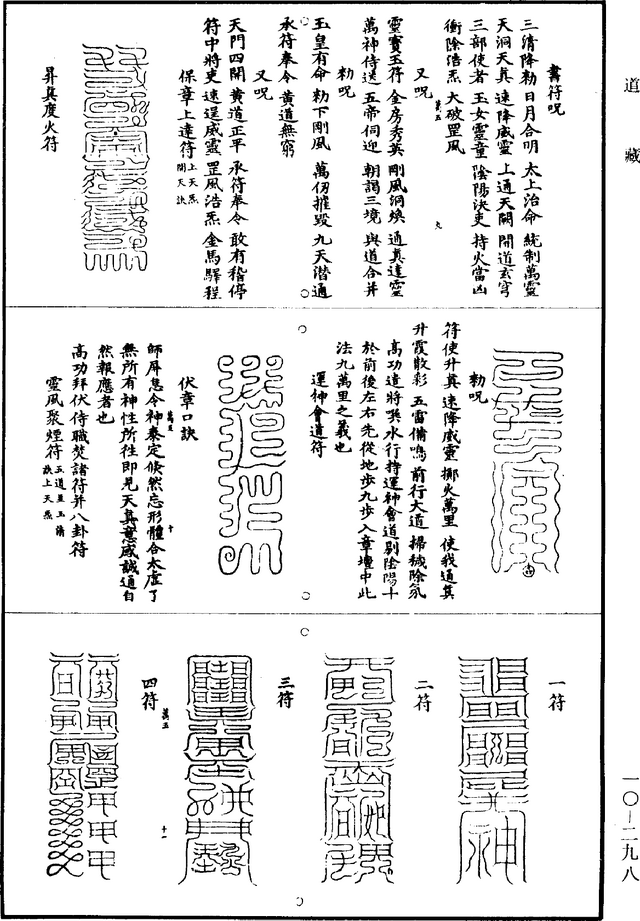 道藏
書符呪
三清降勑 日月合明 太上治命 統制萬靈
天洞天真 速降威靈 上通天闕 開道玄穹
三部使者 玉女靈童 陰陽決吏 持火當凶
衝除浩炁 大破罡風
萬五
九
又呪
靈寶玉符 金房秀英 剛風洞煥 通真達靈
萬神侍送 五帝伺迎 朝謁三境 與道合并
勑呪
玉皇有命 勑下剛風 萬仞摧毀 九天潛通
承符奉令 黃道無窮
又呪
天門四開 黃道正平 承符奉令 敢有稽停
符中將吏 速逞威靈 罡風浩炁 金馬驛程
保章上達符 上天炁開天訣
昇真度火符
勑呪
符使升真 速降威靈 擲火萬里 使我通真
升霞散彩 五雷備鳴 前行大道 掃穢除氛
高功遣將噀水行持運神會道剔陰陽斗
於前後左右先從地步九步入章壇中此
法九萬里之義也
運神會道符
伏章口訣
萬五
十
師屏息令神泰定倏然忘形體合太虛了
無所有神性所往即見天真意感誠通自
然報應者也
高功拜伏侍職焚諸符并八卦符
靈風聚煙符
一符
二符
三符
萬五
十一
四符
一〇—二九八